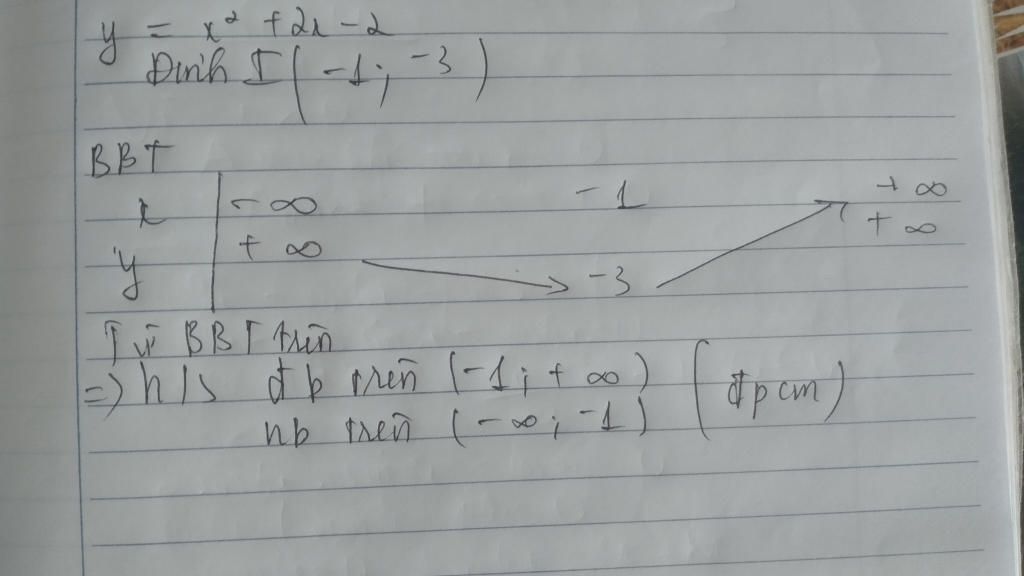 y = x² + 2x - 2
Đỉnh I ( -1 ; -3 )
BBT
x -∞ -1 +∞
y +∞ -3 +∞
Từ BBT trên
=> h/s đb trên (-1; +∞) (đpcm)
nb trên (-∞; -1)